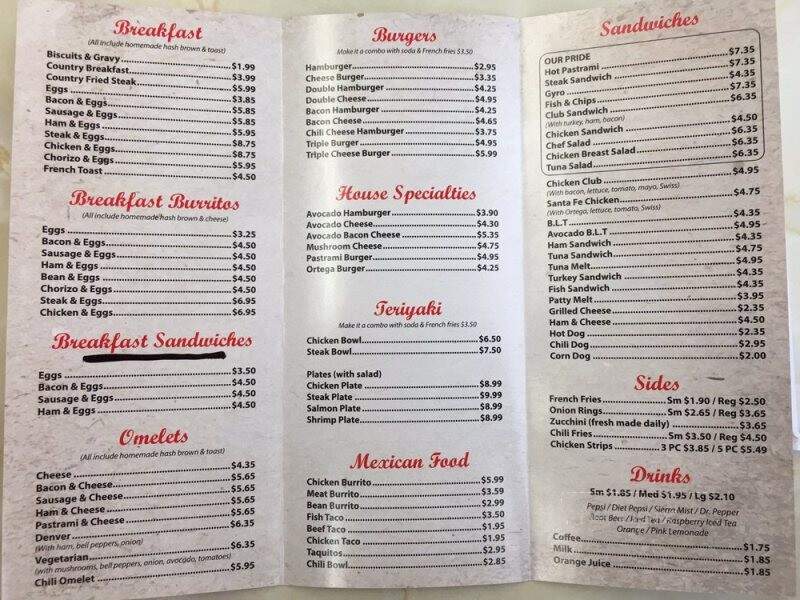 Breakfast
(All include homemade hash brown & toast)
Biscuits & Gravy $1.99
Country Breakfast $3.99
Country Fried Steak $5.99
Eggs $3.85
Bacon & Eggs $5.85
Sausage & Eggs $5.85
Ham & Eggs $5.95
Steak & Eggs $8.75
Chicken & Eggs $8.75
Chorizo & Eggs $5.95
French Toast $4.50
Breakfast Burritos
(All include homemade hash brown & cheese)
Eggs $3.25
Bacon & Eggs $4.50
Sausage & Eggs $4.50
Ham & Eggs $4.50
Bean & Eggs $4.50
Chorizo & Eggs $4.50
Steak & Eggs $6.95
Chicken & Eggs $6.95
Breakfast Sandwiches
Eggs $3.50
Bacon & Eggs $4.50
Sausage & Eggs $4.50
Ham & Eggs $4.50
Omelets
(All include homemade hash brown & toast)
Cheese $4.35
Bacon & Cheese $5.65
Sausage & Cheese $5.65
Ham & Cheese $5.65
Pastrami & Cheese $5.65
Denver $6.35
(With ham, bell peppers, onion)
Vegetarian $6.35
(with mushrooms, bell peppers, onion, avocado, tomatoes)
Chili Omelet $5.95
Burgers
Make it a combo with soda & French fries $3.50
Hamburger $2.95
Cheese Burger $3.35
Double Hamburger $4.25
Double Cheese $4.95
Bacon Hamburger $4.25
Bacon Cheese $4.65
Chili Cheese Hamburger $3.75
Triple Burger $4.95
Triple Cheese Burger $5.99
House Specialties
Avocado Hamburger $3.90
Avocado Cheese $4.30
Avocado Bacon Cheese $5.35
Mushroom Cheese $4.75
Pastrami Burger $4.95
Ortega Burger $4.25
Teriyaki
Make it a combo with soda & French fries $3.50
Chicken Bowl $6.50
Steak Bowl $7.50
Plates (with salad)
Chicken Plate $8.99
Steak Plate $9.99
Salmon Plate $8.99
Shrimp Plate $8.99
Mexican Food
Chicken Burrito $5.99
Meat Burrito $3.59
Bean Burrito $2.99
Fish Taco $3.50
Beef Taco $1.95
Chicken Taco $1.95
Taquitos $2.95
Chili Bowl $2.85
Sandwiches
OUR PRIDE
Hot Pastrami $7.35
Steak Sandwich $7.35
Gyro $4.35
Fish & Chips $7.35
Club Sandwich $6.35
(With turkey, ham, bacon)
Chicken Sandwich $4.50
Chef Salad $6.35
Chicken Breast Salad $6.35
Tuna Salad $6.35
Chicken Club $4.95
(With bacon, lettuce, tomato, mayo, Swiss)
Santa Fe Chicken $4.75
(With Ortega, lettuce, tomato, Swiss)
B.L.T $4.35
Avocado B.L.T $4.95
Ham Sandwich $4.35
Tuna Sandwich $4.75
Tuna Melt $4.95
Turkey Sandwich $4.35
Fish Sandwich $4.35
Patty Melt $3.95
Grilled Cheese $2.35
Ham & Cheese $4.50
Hot Dog $2.35
Chili Dog $2.95
Corn Dog $2.00
Sides
French Fries Sm $1.90 / Reg $2.50
Onion Rings Sm $2.65 / Reg $3.65
Zucchini (fresh made daily) $3.65
Chili Fries Sm $3.50 / Reg $4.50
Chicken Strips 3 PC $3.85 / 5 PC $5.49
Drinks
Sm $1.85 / Med $1.95 / Lg $2.10
Pepsi / Diet Pepsi / Sierra Mist / Dr. Pepper
Root Beer / Iced Tea / Raspberry Iced Tea
Orange / Pink Lemonade
Coffee $1.75
Milk $1.85
Orange Juice $1.85